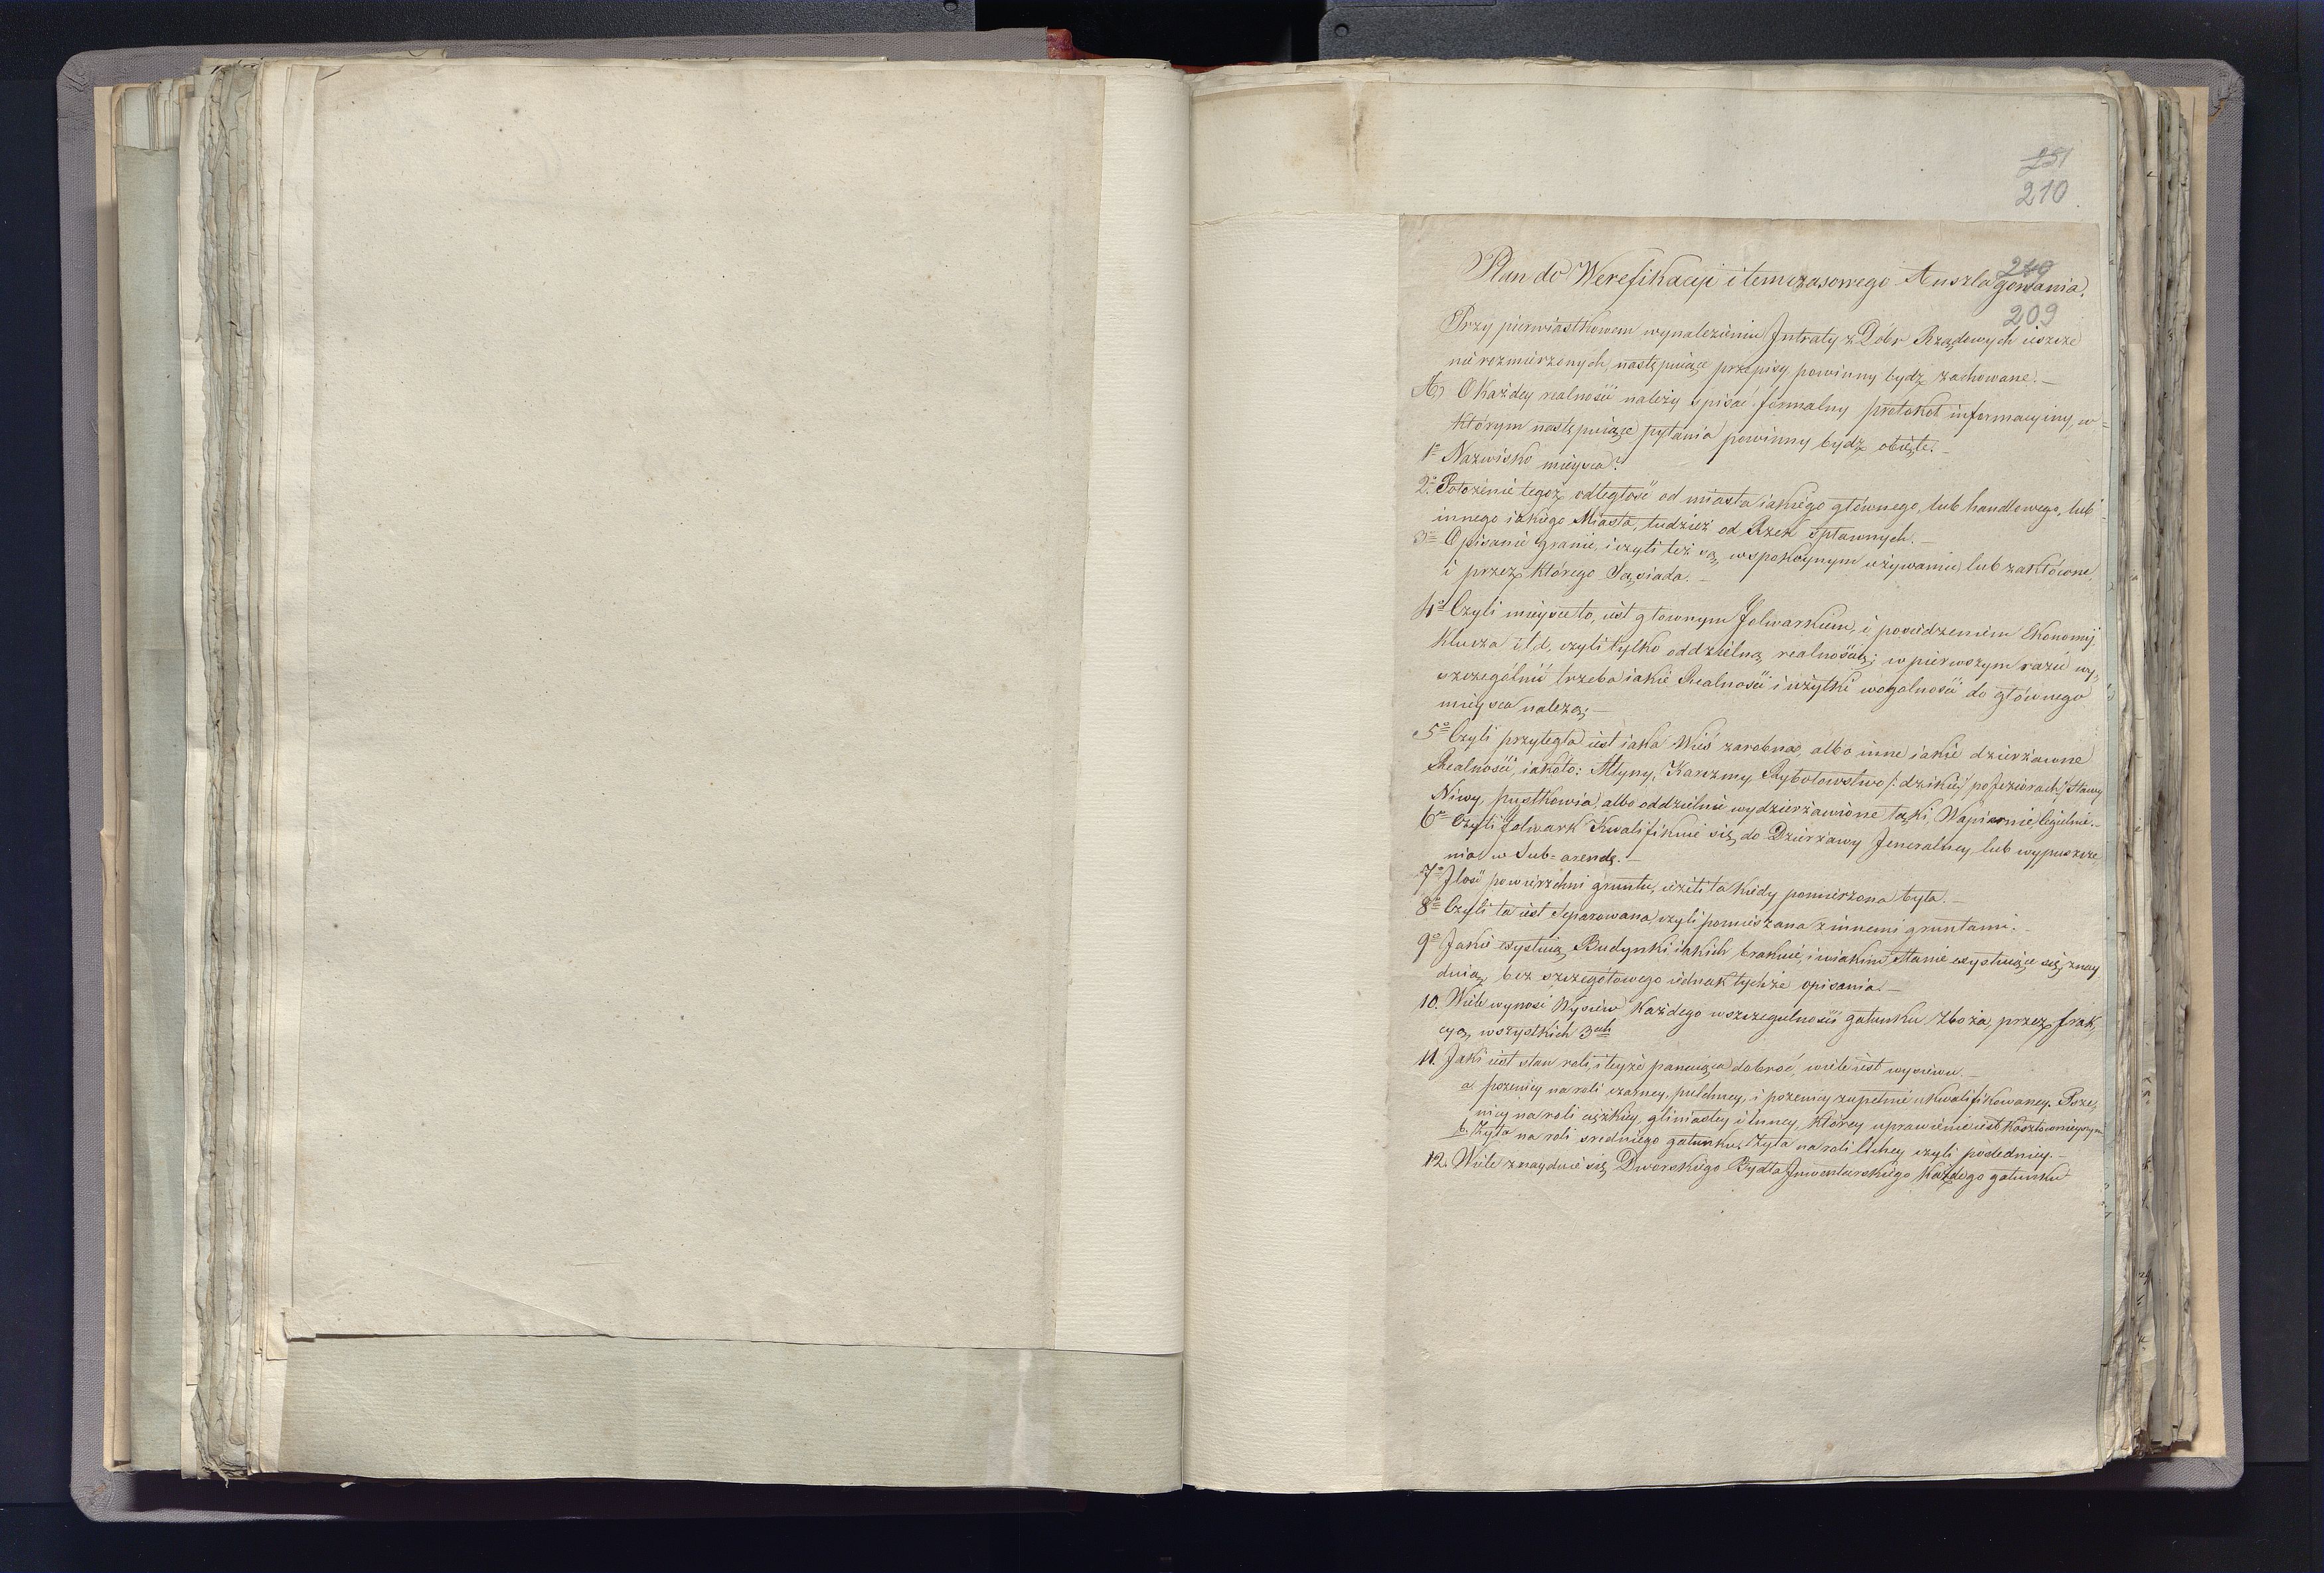 251
210
Plan do Werefikacyi i temczasowego Anszlagowania.
210
209
Przy pierwiastkowem wynalezieniu Intraty z Dóbr Rządowych ieszcze
nie rozmierzonych, następuiące przepisy powinny bydź zachowane. —
A) O Każdey realności należy spisać formalny protokół informacyiny, w
którym następuiące pytania powinny bydź obięte. —
1o Nazwisko mieysca?
2o Położenie tegoż, odległość od miasta iakiego głównego, lub handlowego, lub
innego iakiego Miasta, tudzież od Rzek spławnych. —
3o Opisanie granic, i czyli też są, wspokoynym używaniu lub zakłócone,
i przez którego Sąsiada. —
4o Czyli mieysce to, iest głownym folwarkiem, i posiedzeniem Ekonomij
Klucza itd, czyli tylko oddzielną realnością; w pierwszym razie wy„
szczególnić trzeba iakie Realności i użytki wogólności do głównego
mieysca należą; —
5o Czyli przyległa iest iaka Wieś zarobna, albo inne iakie dzierżawne
Realności, iakoto: Młyny, Karczmy, Rybołowstwo /: dzikie/ po Jeziorach/ Stawy
Niwy, pustkowia, albo oddzielnie wydzierżawione łąki, Wapiarnie, Cegielnie. —
6o Czyli folwark Kwalifikuie się do Dzierżawy Jeneralney lub wypuszcze„
nia w Sub=arendę. —
7o Jlość powierzchni gruntu, ieżeli ta kiedy pomierzona była. —
8o Czyli ta iest Separowana czyli pomieszana z innemi gruntami. —
9o Jakie exystuią Budynki iakich brakuie, i wiakim Stanie exystuiące się znay„
duią, bez szczegółowego iednak tychże opisania. —
10. Wiele wynosi Wysiew Każdego wszczegulności gatunku Zboża, przez frak„
cyą wszystkich 3ech
11. Jaki iest stan roli, i teyże panuiąca dobroć, wiele iest wysiewu. —
a. pszenicy na roli czarney, pulchney, i pszenicy zupełnie ukwalifikowaney. Psze„
nicy na roli ciężkiey, gliniastey i łuney, którey uprawienie iest kosztownieyszym
b. Żyta na roli średniego gatunku, Żyta na roli lichey czyli pośledniey. —
12. Wiele znayduie się Dworskiego Bydła Jnwentarskiego każdego gatunku